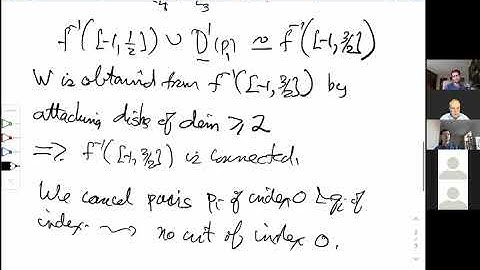 f⁻¹([-1, 1/2]) ∪ D¹(p₁) ≃ f⁻¹([-1, 3/2])
W is obtained from f⁻¹([-1, 3/2]) by
attaching disks of dim ≥ 2
⇒ f⁻¹([-1, 3/2]) is connected.
We cancel pairs pᵢ of index 0 & qᵢ of
index ⇝ no crit of index 0.